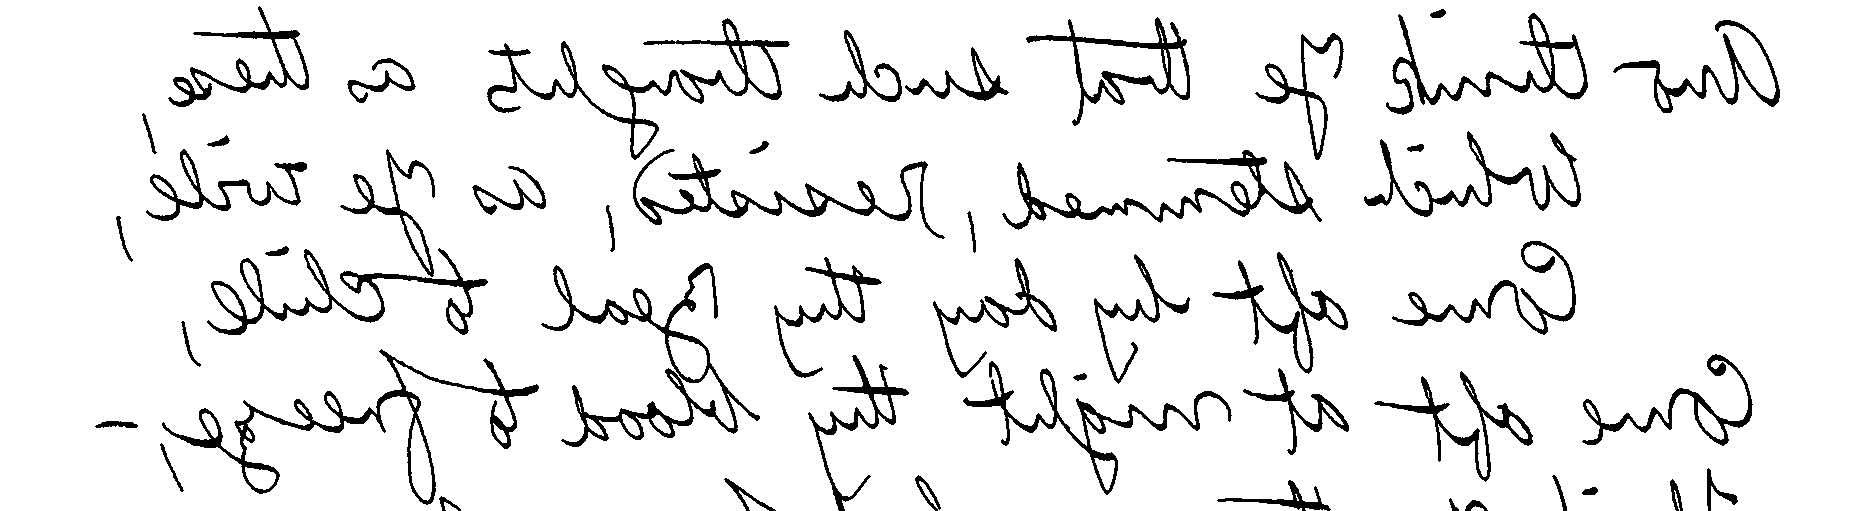 And think Ye that such thoughts as these,
Which stemmed, Resisted, as Ye wile,
Come oft by day thy Zeal to chile,
Come oft at night thy blood to freeze, –